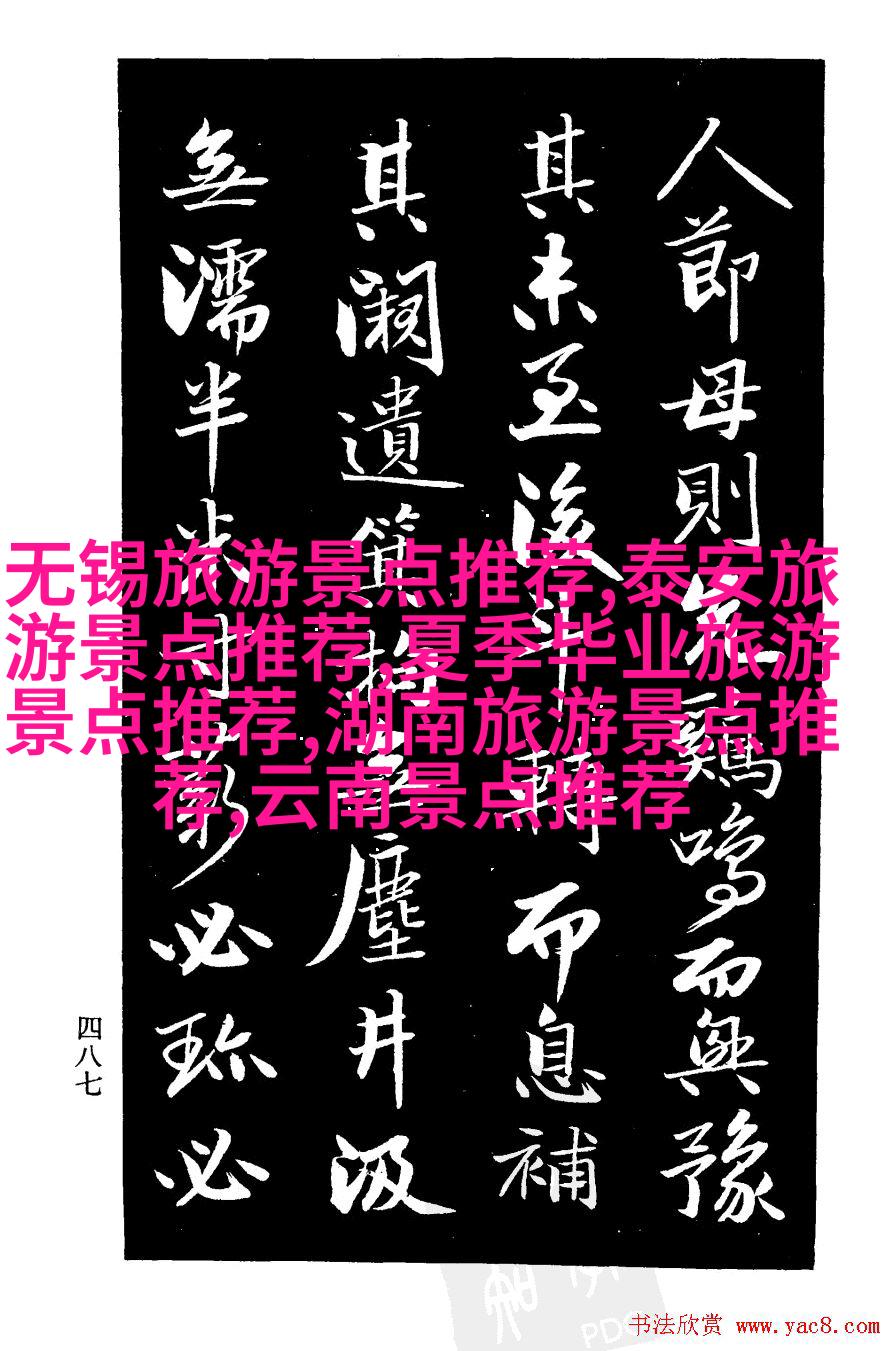 人節母則鷄鳴而興豫
其未至後斗轉而息補
其闕遺箕無塵井汲
無濡半寸薪必珍必
无锡旅游景点推荐,泰安旅
游景点推荐,夏季毕业旅游
景点推荐,湖南旅游景点推
荐,云南景点推荐
四八七
PDG
书法欣赏 www.yac8.com